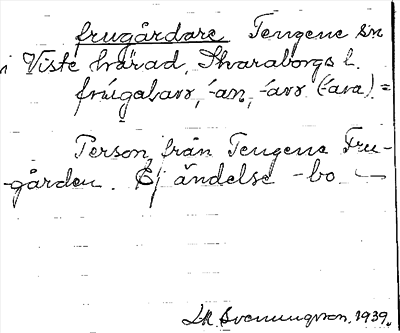 frugårdare Tengene sn
i Viste härad, Skaraborgs l.
frúgaɫarr, ´-an, ´-arr (´-ara). =
Person från Tengene Fru-
-gården. Ej ändelse -bo.
LM. Svenungsson, 1939.